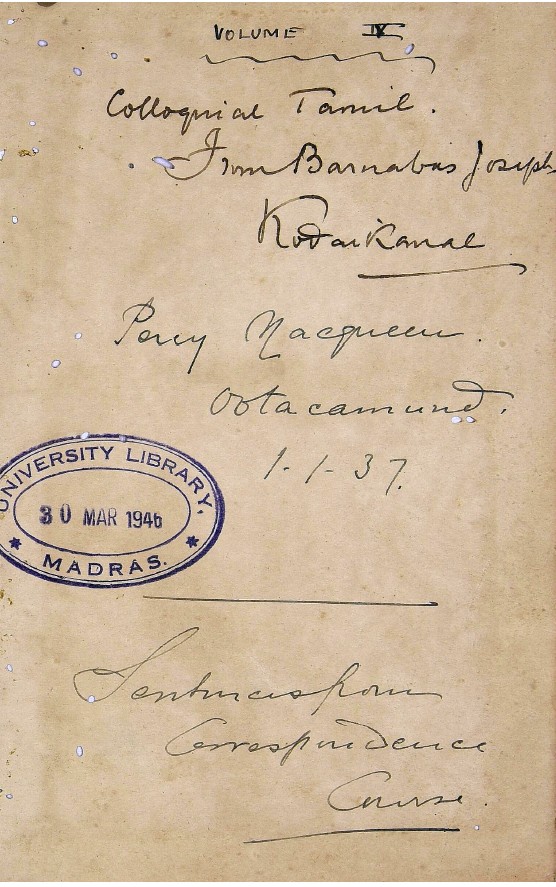 VOLUME IV
Colloquial Tamil.
From Barnabas Joseph
Kodaikanal
Percy Macqueen.
Ootacamund.
1-1-37.
UNIVERSITY LIBRARY,
30 MAR 1946
* MADRAS. *
Sentences from
Correspondence
Course.